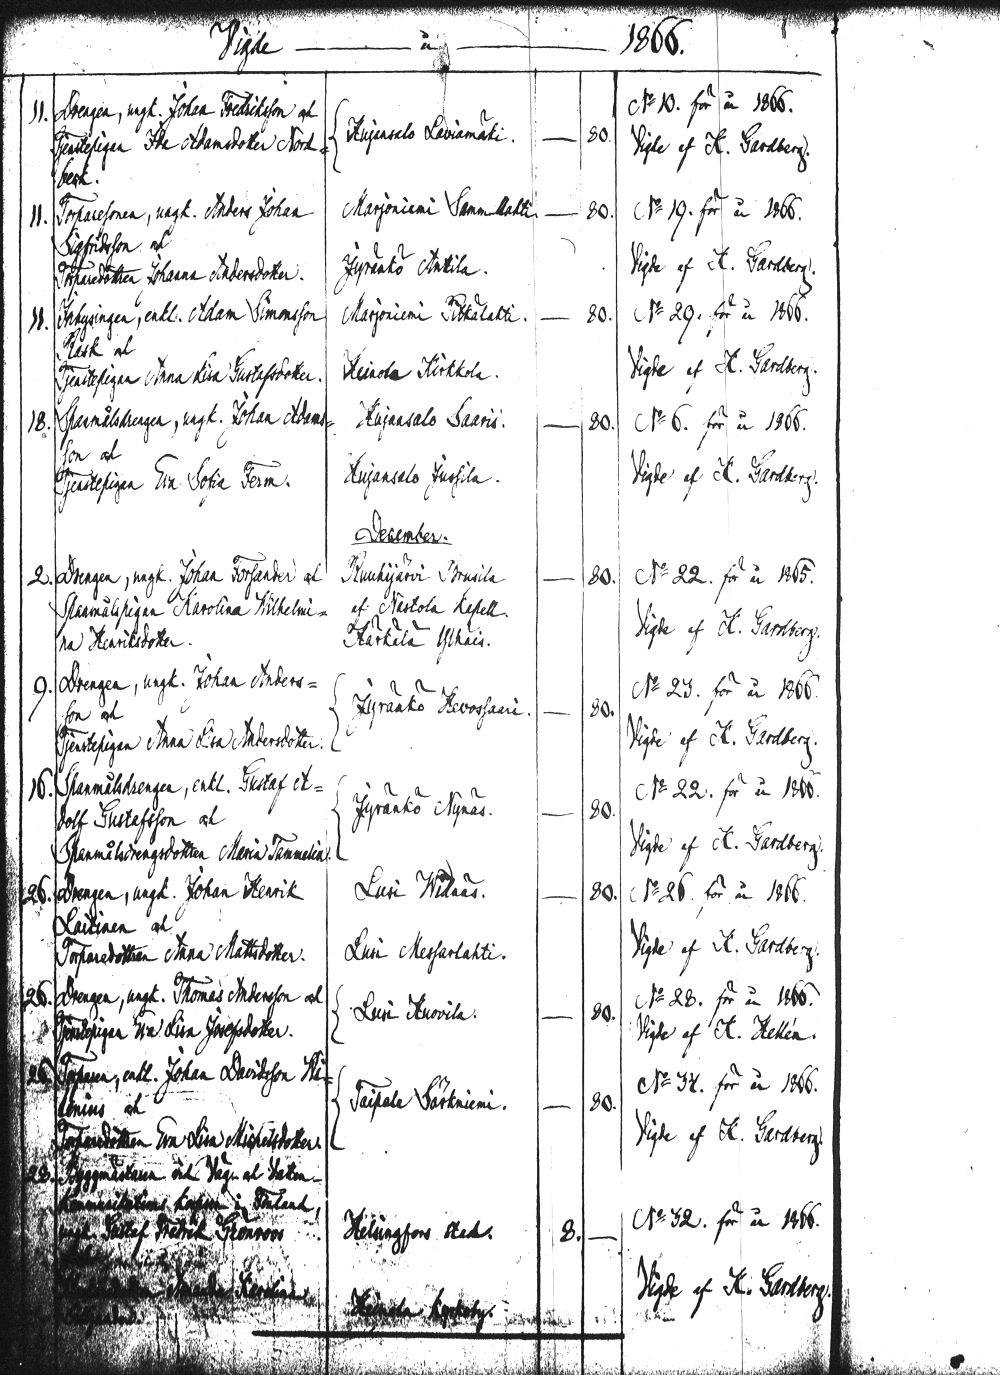 Vigde — u — 1866.
11. Drengen, ungk. Johan Fredriksson och
Tjenstepigan Ida Adamsdotter Nord=
berk.
Kujansalo Laviamäki. — 80.
No 10. för u 1866.
Vigde af K. Gardberg.
11. Torparesonen, ungk. Anders Johan
Sigfridsson och
Torparedottren Johanna Andersdotter.
Marjoniemi Sammallahti. — 80.
Jyränkö Anttila.
No 19. för u 1866.
Vigde af K. Gardberg.
11. Inhysingen, enkl. Adam Simonsson
Rask och
Tjenstepigan Anna Lisa Gustafsdotter.
Marjoniemi Pitkälahti. — 80.
Heinola Kirkkola.
No 29. för u 1866.
Vigde af K. Gardberg.
18. Spanmålsdrengen, ungk. Johan Adams=
son och
Tjenstepigan Eva Sofia Ferm.
Kujansalo Saaris. — 80.
Kujansalo Jussila.
No 6. för u 1866.
Vigde af K. Gardberg.
December.
2. Drengen, ungk. Johan Forsander och
Spanmålspigan Karolina Wilhelmi=
na Henriksdotter.
Ruuhijärvi Prusila
af Nastola Kapell.
Härkälä Ylhäis. — 80.
No 22. för u 1865.
Vigde af K. Gardberg.
9. Drengen, ungk. Johan Anders=
son och
Tjenstepigan Anna Lisa Andersdotter.
Jyränkö Hevossaari. — 80.
No 23. för u 1866.
Vigde af K. Gardberg.
16. Spanmålsdrengen, enkl. Gustaf A=
dolf Gustafsson och
Spanmålsdrengsdottren Maria Tammelin.
Jyränkö Nynäs. — 80.
No 22. för u 1866.
Vigde af K. Gardberg.
26. Drengen, ungk. Johan Henrik
Laitinen och
Torparedottren Anna Mattsdotter.
Lusi Widnäs. — 80.
Lusi Messarlahti.
No 26. för u 1866.
Vigde af K. Gardberg.
26. Drengen, ungk. Thomas Andersson och
Tjenstepigan Eva Lisa Josefsdotter.
Lusi Kuovila. — 80.
No 28. för u 1866.
Vigde af K. Hellén.
26. Torparen, enkl. Johan Davidsson
och
Torparedottren Eva Lisa Michelsdotter.
Taipale Särkniemi. — 80.
No 34. för u 1866.
Vigde af K. Gardberg.
28. Byggmästaren vid Väg- och Vatten-
kommunikations korpsen i Finland,
ungk. Gustaf Fredrik Grönroos
Amanda Karolina
Helsingfors stad. 8. —
Heinola kyrkoby.
No 32. för u 1866.
Vigde af K. Gardberg.